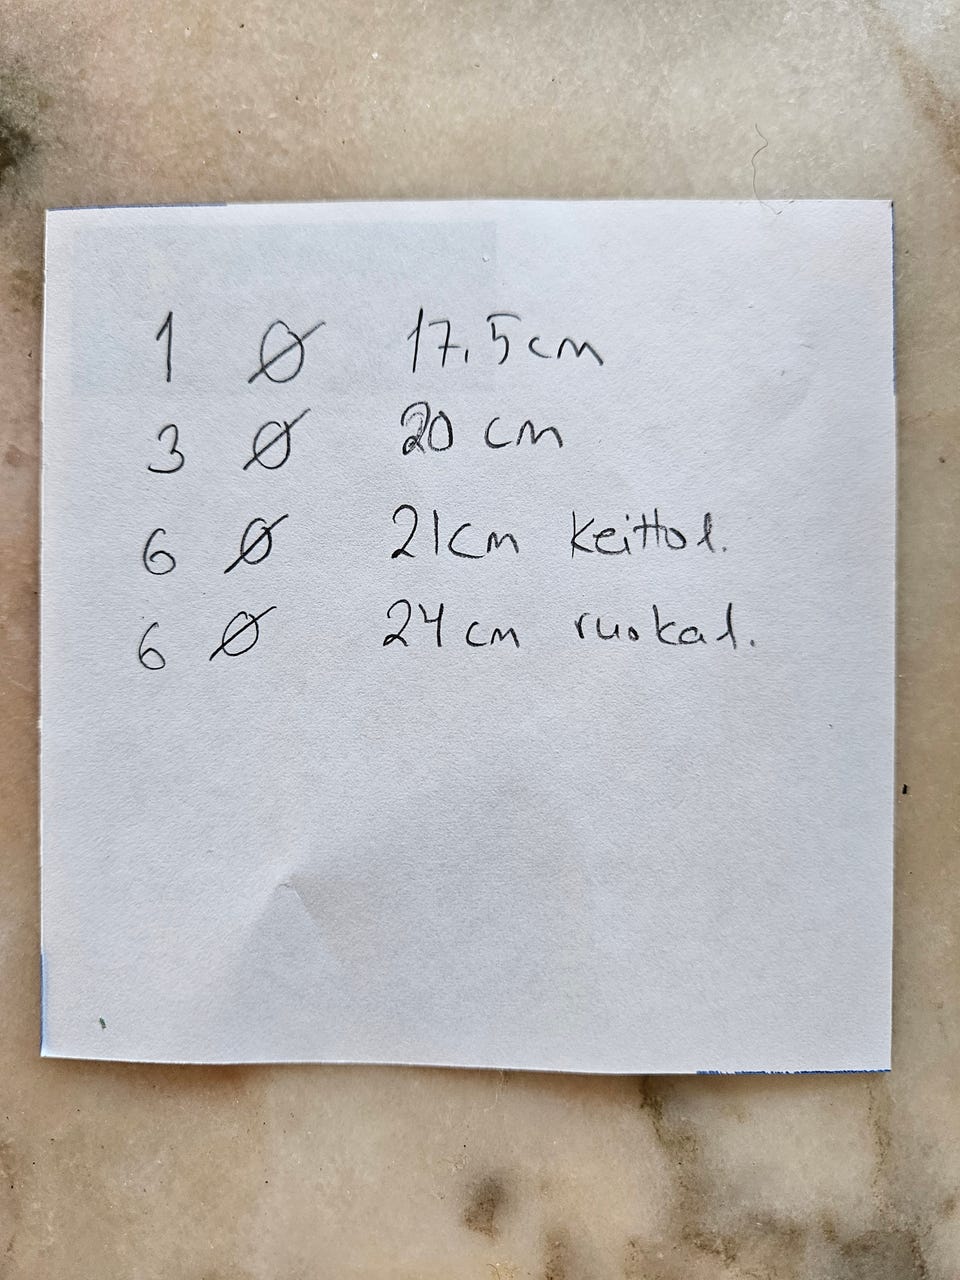 1 Ø 17.5cm
3 Ø 20 cm
6 Ø 21cm keittol.
6 Ø 24cm ruokal.